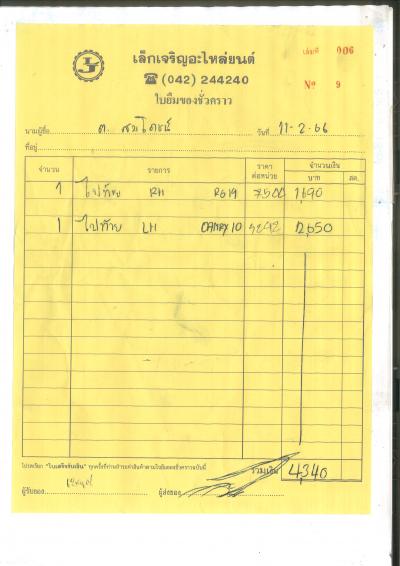 เล็กเจริญอะไหล่ยนต์
เล่มที่ 006
☎ (042) 244240
ใบยืมของชั่วคราว
Nº 9
นามผู้ซื้อ ต. วันที่ 11-2-66
ที่อยู่
จำนวน รายการ ราคาต่อหน่วย จำนวนเงิน
บาท สต.
1 ไฟท้าย RH 1,690
1 ไฟท้าย LH CAMRY 10 2,650
โปรดเรียก "ใบเสร็จรับเงิน" ทุกครั้งที่ท่านชำระค่าสินค้าตามใบยืมของชั่วคราวฉบับนี้
รวมเงิน 4,340
ผู้รับของ ผู้ส่งของ